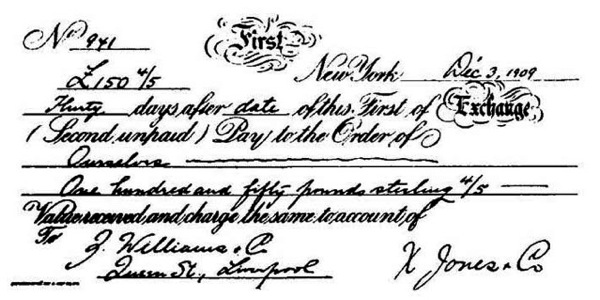 No 941 First
£150 4/5 New York Dec 3, 1909
Thirty days after date of this First of Exchange
(Second unpaid) Pay to the Order of
Ourselves
One hundred and fifty pounds sterling 4/5
Value received and charge the same to account of
To J. Williams & Co
Queen St., Liverpool X Jones & Co